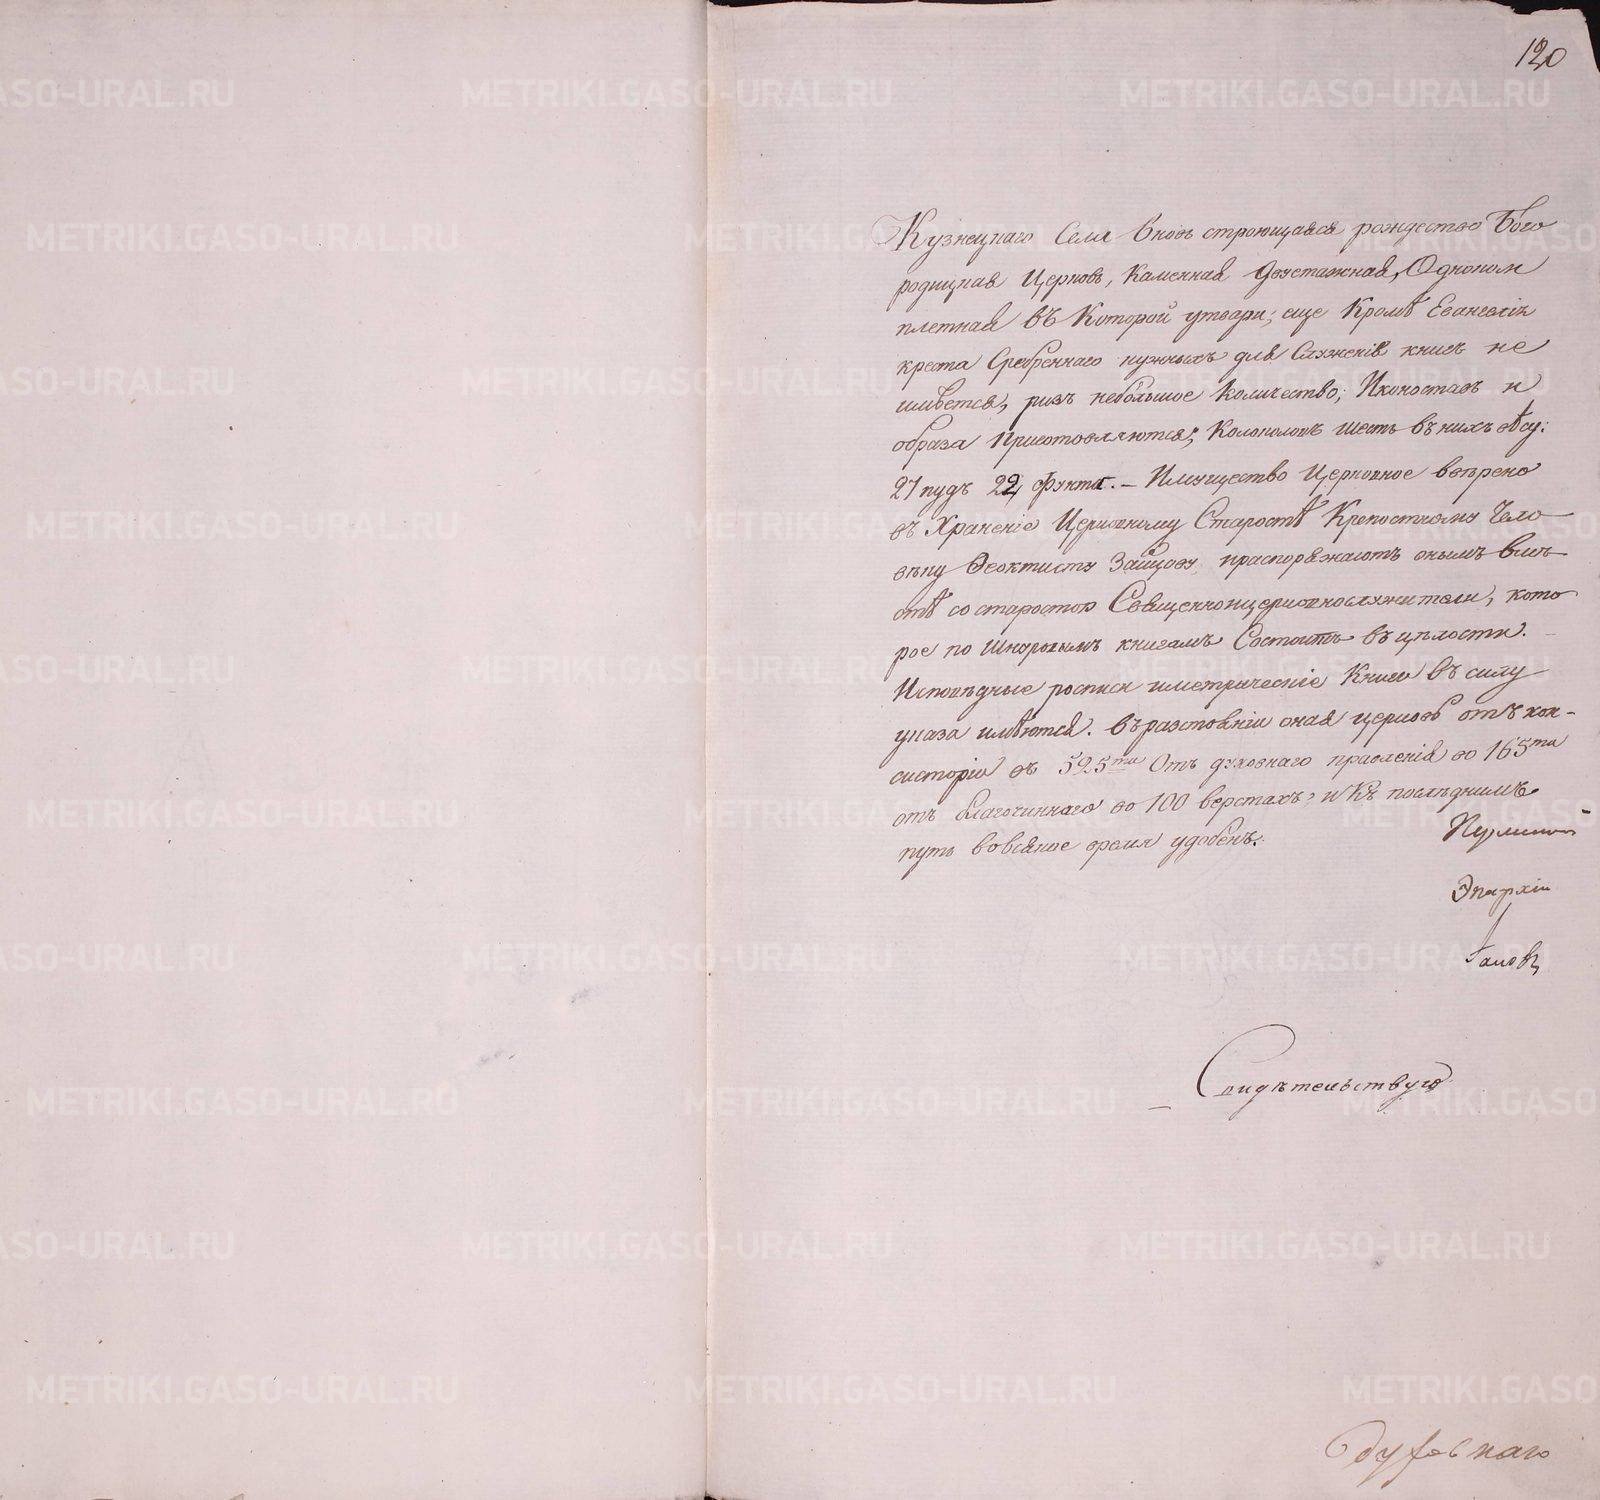 120
Кузнецкаго Села вновь строющаяся рождество Бого
родицкая Церковь, Каменная двухетажная, Одноком
плетная въ Которой утвари; еще Кромѣ Евангелія
креста Сребреннаго нужныхъ для Служенія книгъ не
имѣется, ризъ небольшое количество; Иконостасъ и
образа приготовляются; Колоколовъ шесть въ нихъ вѣсу:
27 пудъ 22 фунта. — Имущество Церковное ввѣрено
въ Храненіе Церковному Старостѣ Крепостному Чело
вѣку Феоктисту Зайцову, и распоряжаютъ онымъ вмѣ
стѣ со старостою Священноицерковнослужители, кото
рое по Шнуровымъ книгамъ Состоитъ въ цѣлости. —
Исповѣдные росписи иметрическіе Книги въ силу
указа имѣются. въ разстояніи оная церковь отъ кон-
систоріи въ 525ти Отъ духовнаго правленія во 165ти
отъ благочиннаго во 100 верстахъ; и къ послѣднимъ
путь вовсякое время удобенъ.
Пермской
Эпархіи
Свидѣтельствую
Духовнаго
METRIKI.GASO-URAL.RU